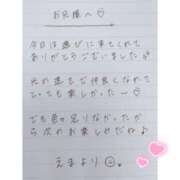 お兄様へ♡
今日は遊びに来てくれて
ありがとうございました
沢山遊んで仲良くなれて
とっても楽しかったー♡
でもまだ足りなかったか
ら次のお楽しみだね♪
えまより